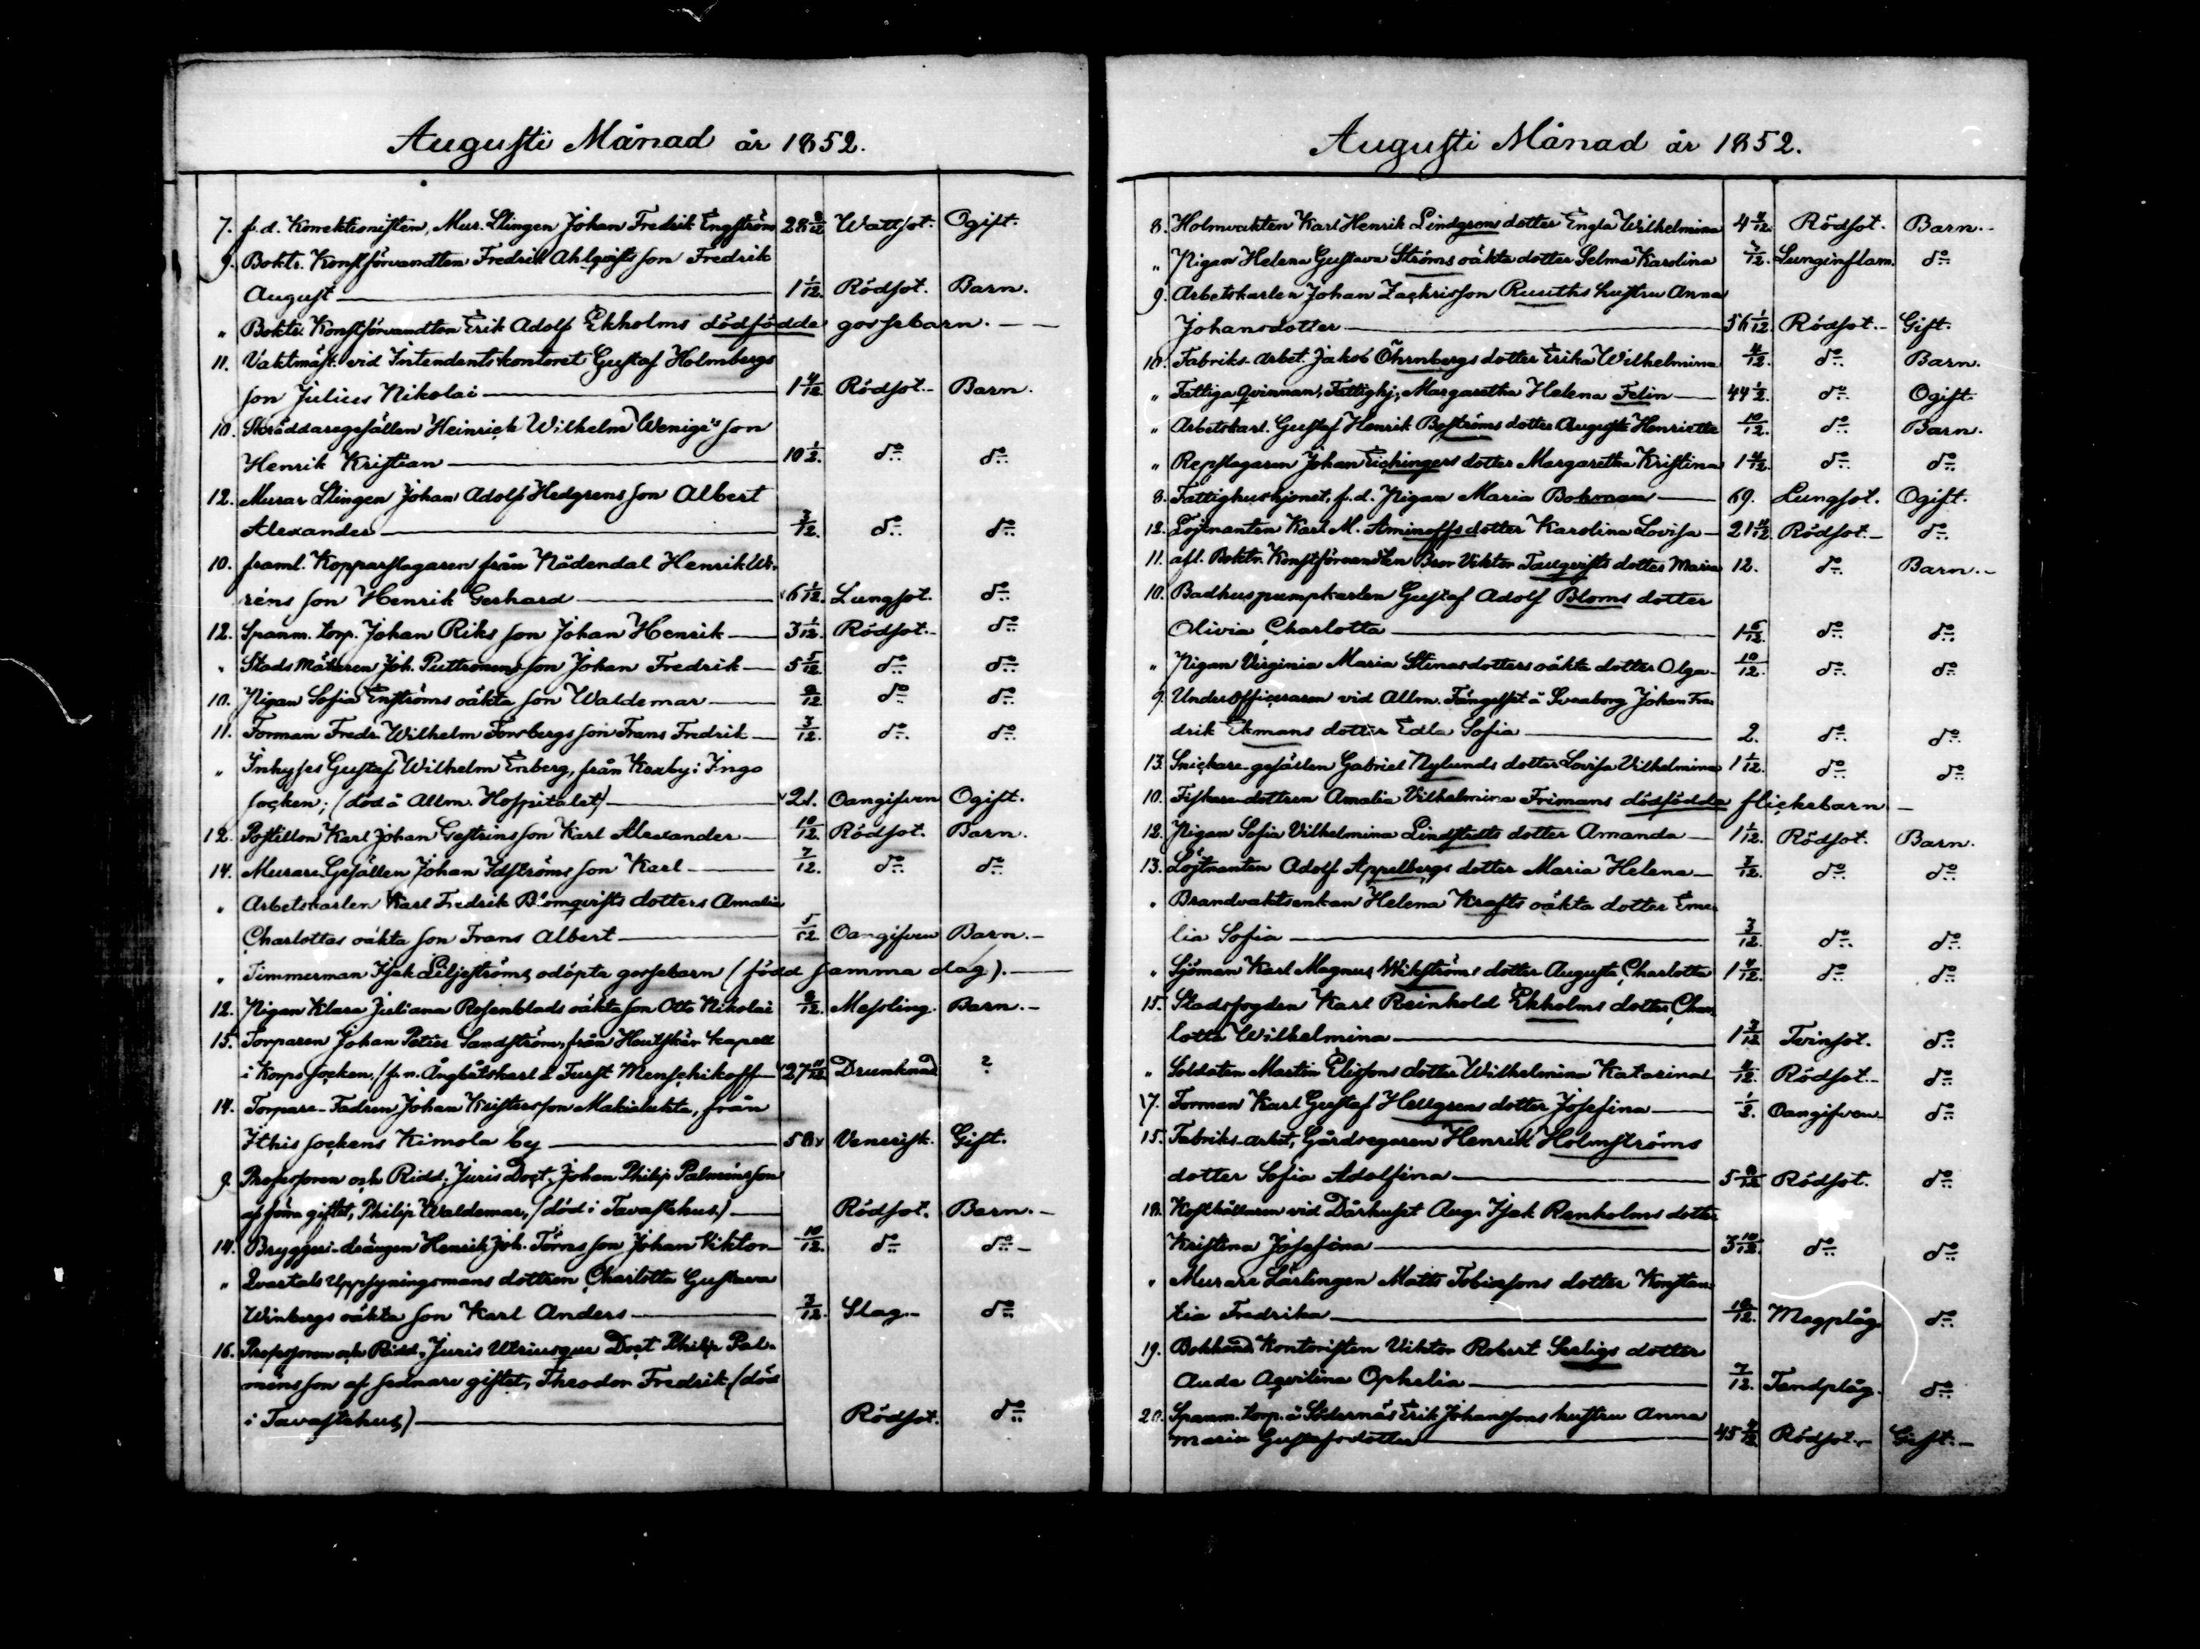 Augusti Månad år 1852.
7. f.d. Korrektionisten, Mur. Llingen Johan Fredrik Engström 28 8/12 Wattsot. Ogift.
9. Boktr. Konstförvandten Fredrik Ahlqvists son Fredrik
August 1 1/12. Rödsot. Barn.
„ Boktr. Konstförvandten Erik Adolf Ekholms dödfödde gossebarn.
11. Vaktmäst. vid Intendentskontoret Gustaf Holmbergs
son Julius Nikolai 1 4/12 Rödsot. Barn.
10. Skräddaregesällen Heinrich Wilhelm Wenige's son
Henrik Kristian 10 1/2. do do
12. Murar Llingen Johan Adolf Hedgrens son Albert
Alexander 3/12. do do
10. framl. Kopparslagaren från Nådendal Henrik We-
réns son Henrik Gerhard 6 1/12. Lungsot. do
12. Spanm. torp. Johan Riks son Johan Henrik 3 1/12. Rödsot. do
„ Stads Mätaren Joh. Puttronens son Johan Fredrik 5 5/12 do do
10. Pigan Sofia Enströms oäkta son Waldemar 9/12 do do
11. Forman Fredr. Wilhelm Forsbergs son Frans Fredrik 3/12. do do
„ Inhyses Gustaf Wilhelm Enberg, från Kexby i Ingo
socken; (död å Allm. Hospitalet) 21. Oangifven Ogift.
12. Postillon Karl Johan Gestrins son Karl Alexander 10/12. Rödsot. Barn.
14. Murare Gesällen Johan Idströms son Karl 7/12. do do
„ Arbetskarlen Karl Fredrik Blomqvists dotters Amalia
Charlottas oäkta son Frans Albert 5/12. Oangifven Barn.
„ Timmerman Isak Liljeströms odöpta gossebarn (född samma dag).
12. Pigan Klara Juliana Rosenblads oäkta son Otto Nikolai 9/12. Messling. Barn.
15. Torparen Johan Petter Sandström, från Houtskär kapell
i Korpo socken, f.n. Ångbåtskarl å Furst Menschikoff 27 11/12 Drunknad ?
14. Torpare-Fadren Johan Kristersson Makialukta, från
Ithis sockens Kimola by 58 Venerisk. Gift.
9. Professoren och Ridd; Juris Doct. Johan Philip Palméns son
af förra giftet, Philip Waldemar, (död i Tavastehus) Rödsot. Barn.
14. Bryggeri-drängen Henrik Joh. Törns son Johan Viktor 10/12. do do
„ Qvartals Uppsyningsmans dottren Charlotta Gustava
Winbergs oäkta son Karl Anders 3/12. Slag. do
16. Professoren och Ridd, Juris Utriusque Doct Philip Pal-
méns son af sednare giftet, Theodor Fredrik (död
i Tavastehus) Rödsot. do
Augusti Månad år 1852.
8. Holmvakten Karl Henrik Lindgrens dotter Engla Wilhelmina 4 4/12. Rödsot. Barn.
„ Pigan Helena Gustava Ströms oäkta dotter Selma Karolina 7/12. Lunginflam. do
9. Arbetskarlen Johan Zachrisson Ruuths hustru Anna
Johansdotter 56 1/12. Rödsot. Gift.
10. Fabriks-arbet. Jakob Öhrnbergs dotter Erika Wilhelmina 4/12. do Barn.
„ Fattiga Qvinnan, Fattighj., Margaretha Helena Felin 44 1/2. do Ogift.
„ Arbetskarl. Gustaf Henrik Boströms dotter Augusta Henrietta 10/12. do Barn.
„ Repslagaren Johan Eichingers dotter Margaretha Kristina 1 4/12. do do
8. Fattighushjonet, f.d. Pigan Maria Bohman 69. Lungsot. Ogift.
12. Löjtnanten Karl M. Aminoffs dotter Karolina Lovisa 21 11/12. Rödsot. do
11. afl. Boktr. Konstförvandten Bror Viktor Taulqvists dotter Maria 12. do Barn.
10. Badhuspumpkarlen Gustaf Adolf Bloms dotter
Olivia Charlotta 1 6/12. do do
„ Pigan Virginia Maria Stinasdotters oäkta dotter Olga 10/12. do do
9. Underofficeraren vid Allm. Fängelset å Sveaborg Johan Fre-
drik Ekmans dotter Edla Sofia 2. do do
13. Snickare-gesällen Gabriel Nylunds dotter Lovisa Vilhelmina 1 1/12. do do
10. Fiskare-dottren Amalia Vilhelmina Frimans dödfödda flickebarn
12. Pigan Sofia Vilhelmina Lindstedts dotter Amanda 1 1/12. Rödsot. Barn.
13. Löjtnanten Adolf Appelbergs dotter Maria Helena 7/12. do do
„ Brandvaktsenkan Helena Krafts oäkta dotter Eme-
lia Sofia 3/12. do do
„ Sjöman Karl Magnus Wikströms dotter Augusta Charlotta 1 4/12. do do
15. Stadsfogden Karl Reinhold Ekholms dotter Char-
lotta Wilhelmina 1 3/12 Tvinsot. do
„ Soldaten Martin Elissons dotter Wilhelmina Katarina 4/12. Rödsot. do
17. Forman Karl Gustaf Hellgrens dotter Josefina 1/2. Oangifven do
15. Fabriks-arbet, Gårdsegaren Henrik Holmströms
dotter Sofia Adolfina 5 9/12 Rödsot. do
18. Kosthållaren vid Dårhuset Aug. Isak Renholms dotter
Kristina Josefina 3 10/12. do do
„ Murare Lärlingen Matts Tobiassons dotter Konstan-
tia Fredrika 10/12. Magplåg. do
19. Bokhand. Kontoristen Viktor Robert Seeligs dotter
Auda Aqvilina Ophelia 7/12. Tandplåg. do
20. Spanm. torp. å Södernäs Erik Johanssons hustru Anna
Maria Gustafsdotter 45 4/12. Rödsot. Gift.